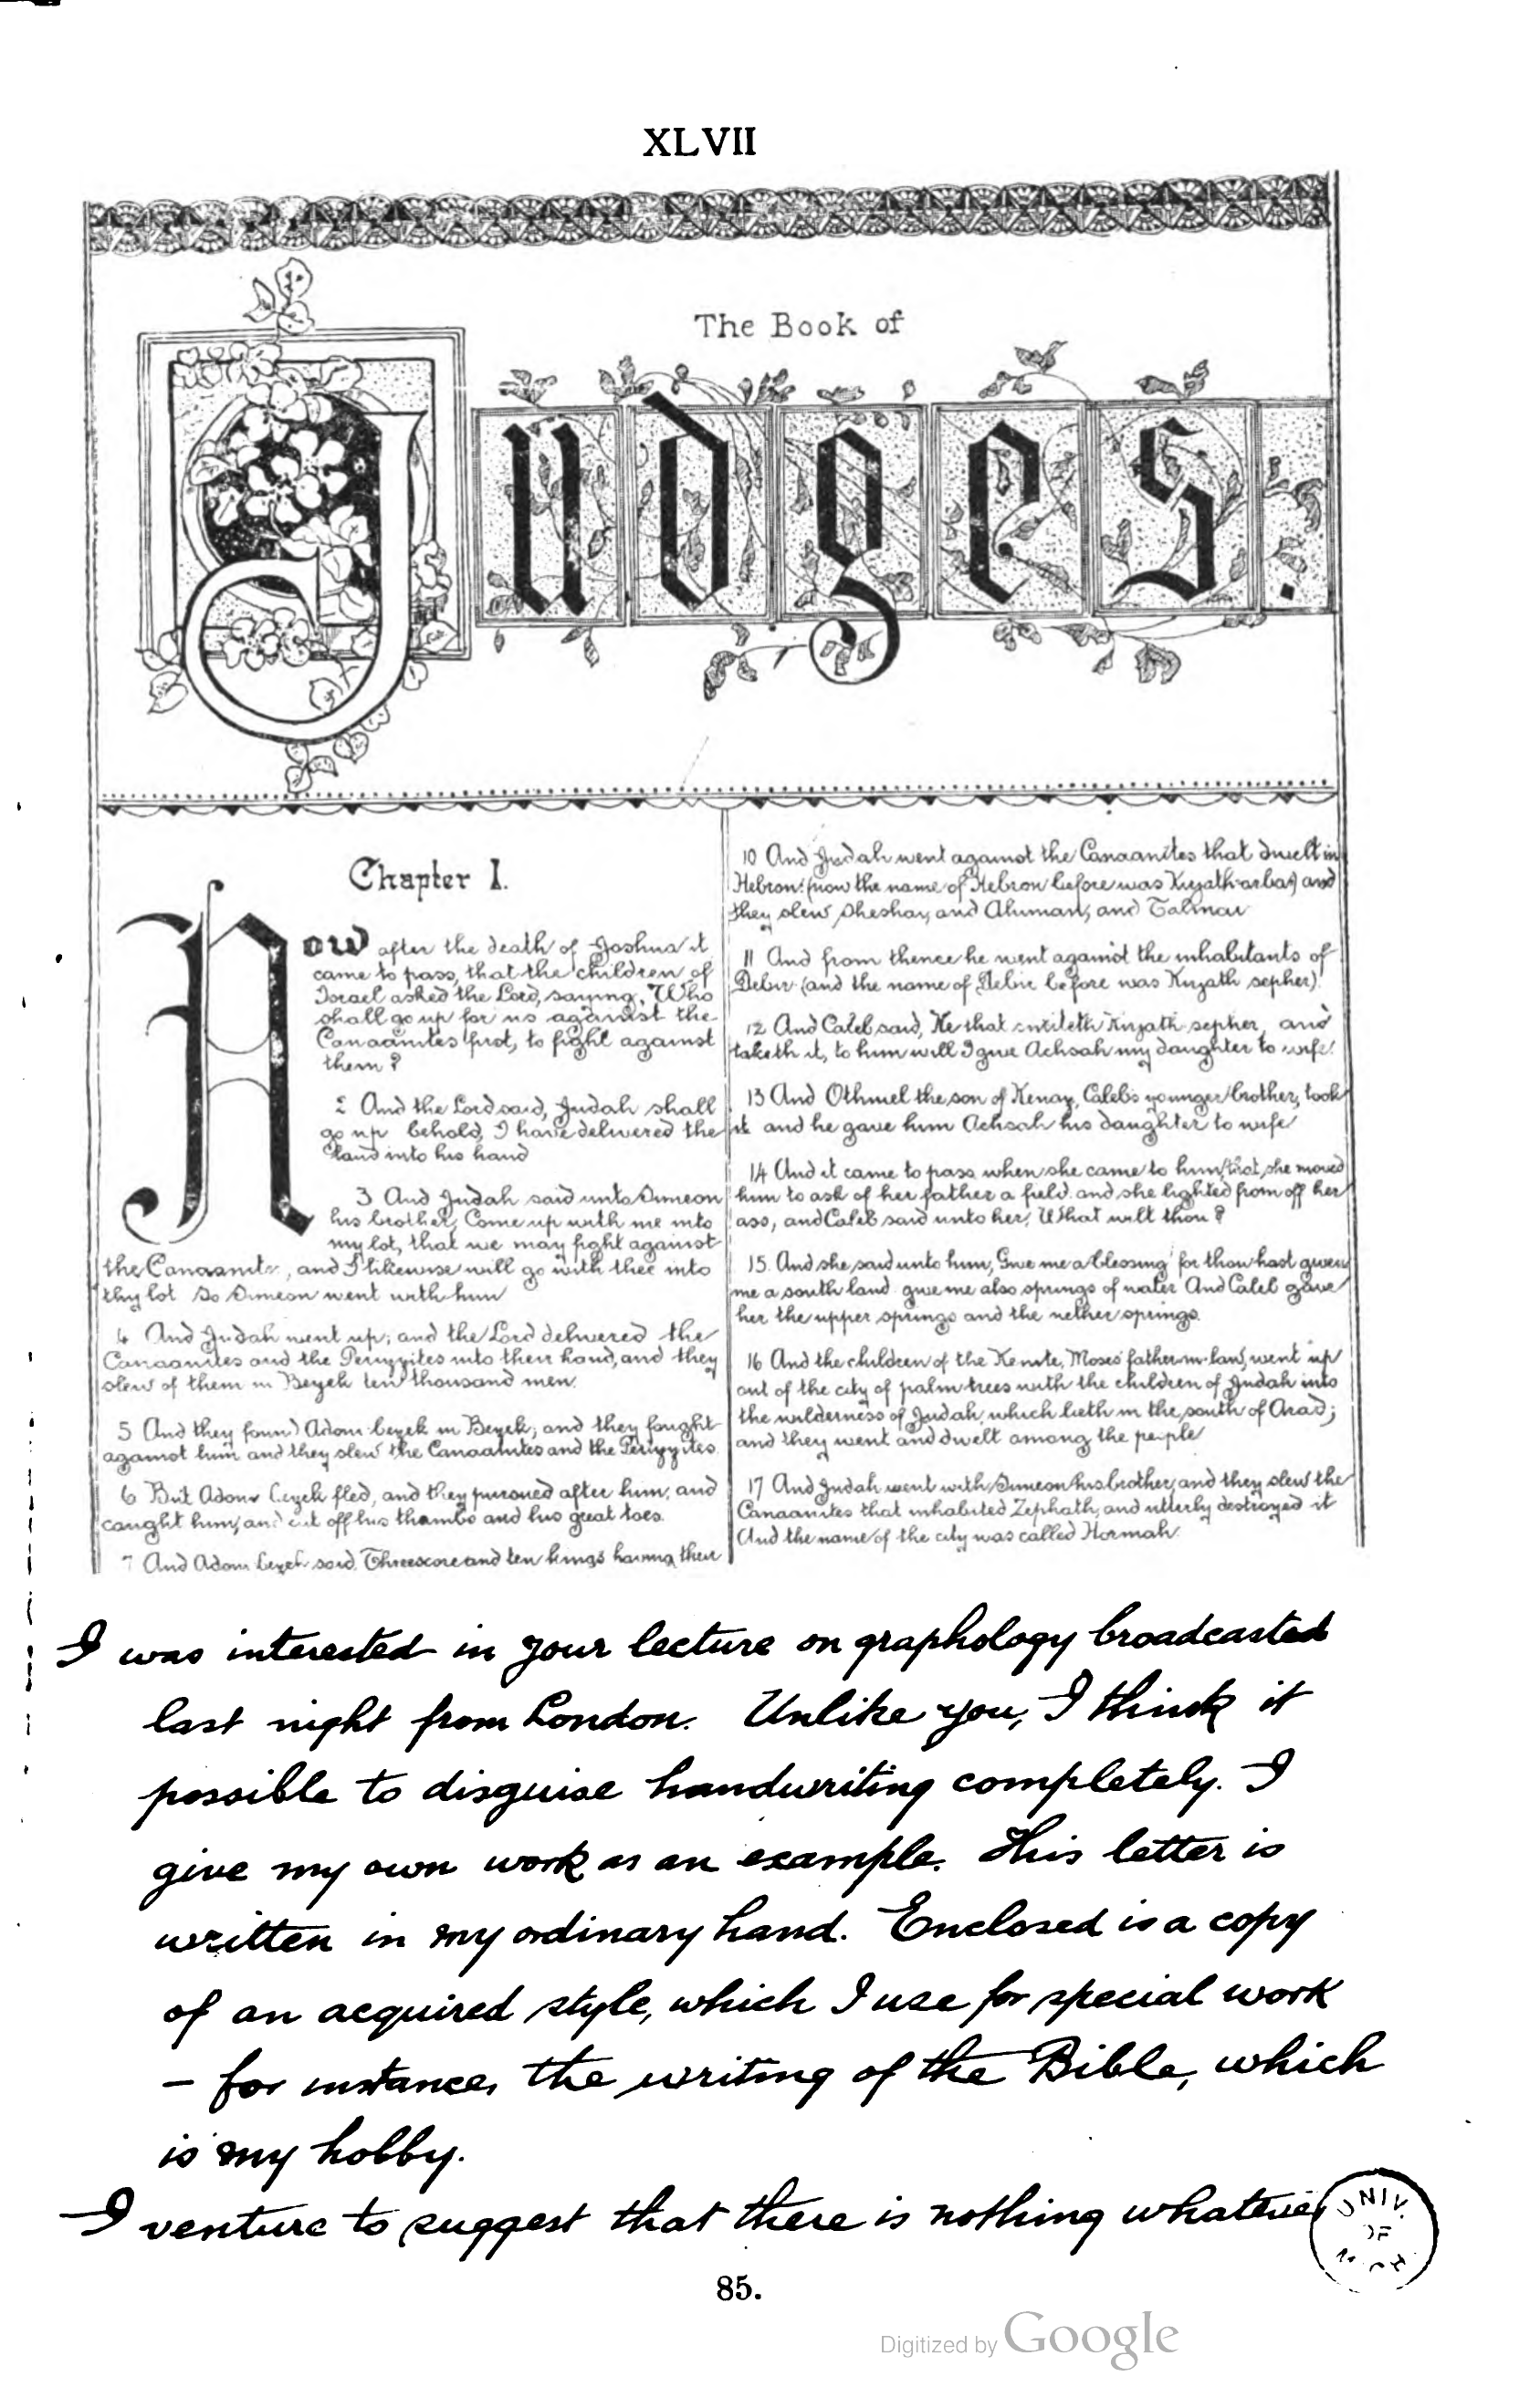 XLVII
The Book of
Judges.
Chapter I.
Now after the death of Joshua it
came to pass, that the children of
Israel asked the Lord, saying, Who
shall go up for us against the
Canaanites first, to fight against
them?
2 And the Lord said, Judah shall
go up behold, I have delivered the
land into his hand
3 And Judah said unto Simeon
his brother, Come up with me into
my lot, that we may fight against
the Canaanites, and I likewise will go with thee into
thy lot So Simeon went with him
4 And Judah went up; and the Lord delivered the
Canaanites and the Perizzites into their hand, and they
slew of them in Bezek ten thousand men.
5 And they found Adoni-bezek in Bezek; and they fought
against him and they slew the Canaanites and the Perizzites.
6 But Adoni bezek fled, and they pursued after him, and
caught him, and cut off his thumbs and his great toes.
7 And Adoni bezek said, Threescore and ten kings having their
10 And Judah went against the Canaanites that dwelt in
Hebron: (now the name of Hebron before was Kirjath-arba) and
they slew Sheshai, and Ahiman, and Talmai
11 And from thence he went against the inhabitants of
Debir (and the name of Debir before was Kirjath sepher).
12 And Caleb said, He that smiteth Kirjath-sepher, and
taketh it, to him will I give Achsah my daughter to wife.
13 And Othniel the son of Kenaz, Caleb's younger brother, took
it and he gave him Achsah his daughter to wife
14 And it came to pass when she came to him, that she moved
him to ask of her father a field. and she lighted from off her
ass, and Caleb said unto her, What wilt thou?
15. And she said unto him, Give me a blessing for thou hast given
me a south land give me also springs of water And Caleb gave
her the upper springs and the nether springs.
16 And the children of the Kenite, Moses' father-in-law, went up
out of the city of palm trees with the children of Judah into
the wilderness of Judah, which lieth in the south of Arad;
and they went and dwelt among the people
17 And Judah went with Simeon his brother, and they slew the
Canaanites that inhabited Zephath, and utterly destroyed it
And the name of the city was called Hormah.
I was interested in your lecture on graphology broadcasted
last night from London. Unlike you, I think it
possible to disguise handwriting completely. I
give my own work as an example. This letter is
written in my ordinary hand. Enclosed is a copy
of an acquired style, which I use for special work
– for instance, the writing of the Bible, which
is my hobby.
I venture to suggest that there is nothing whatever
UNIV.
OF
85.
Digitized by Google